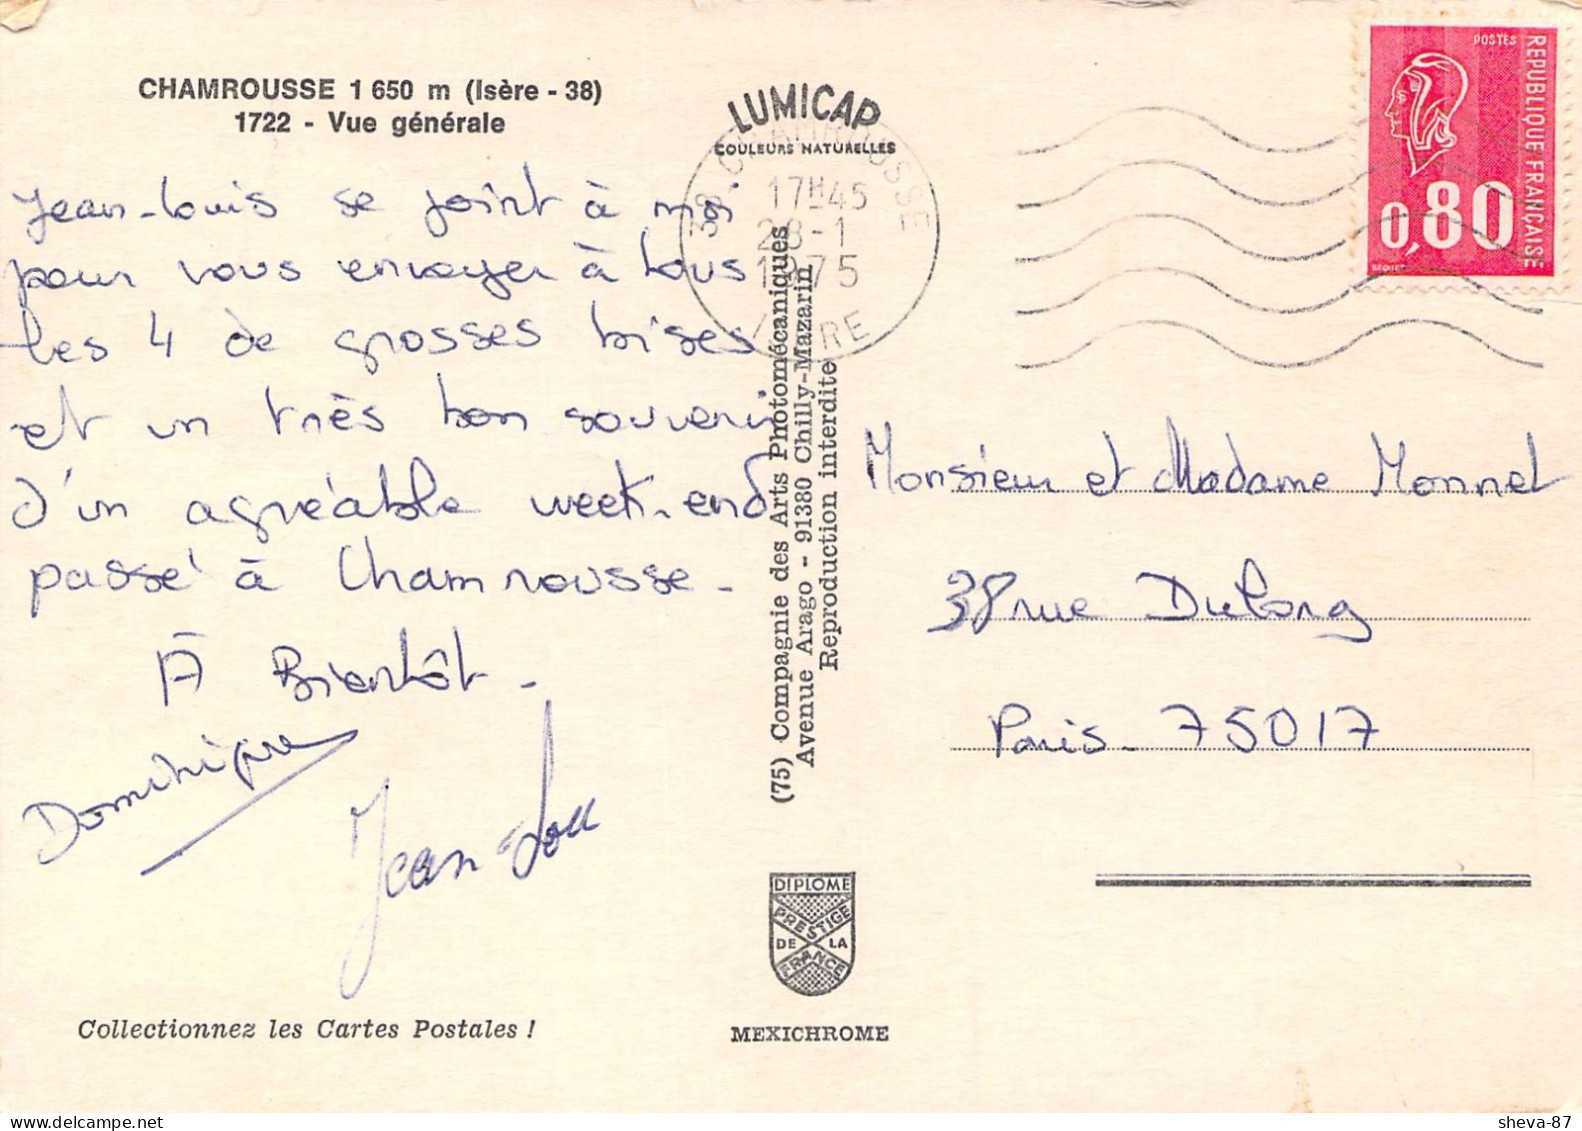 CHAMROUSSE 1 650 m (Isère - 38)
1722 - Vue générale
Jean-Louis se joint à moi
pour vous envoyer à tous
les 4 de grosses bises
et un très bon souvenir
d'un agréable week-end
passé à Chamrousse.
À Bientôt.
Dominique
Jean-Lou
Collectionnez les Cartes Postales !
LUMICAP
COULEURS NATURELLES
38 CHAMROUSSE
17H45
28-1
1975
ISERE
(75) Compagnie des Arts Photomécaniques
Avenue Arago - 91380 Chilly-Mazarin
Reproduction interdite
DIPLOME
PRESTIGE
DE LA
FRANCE
MEXICHROME
POSTES
REPUBLIQUE FRANÇAISE
0,80
BEQUET
Monsieur et Madame Monnet
38 rue Dulong
Paris - 75017
sheva-87